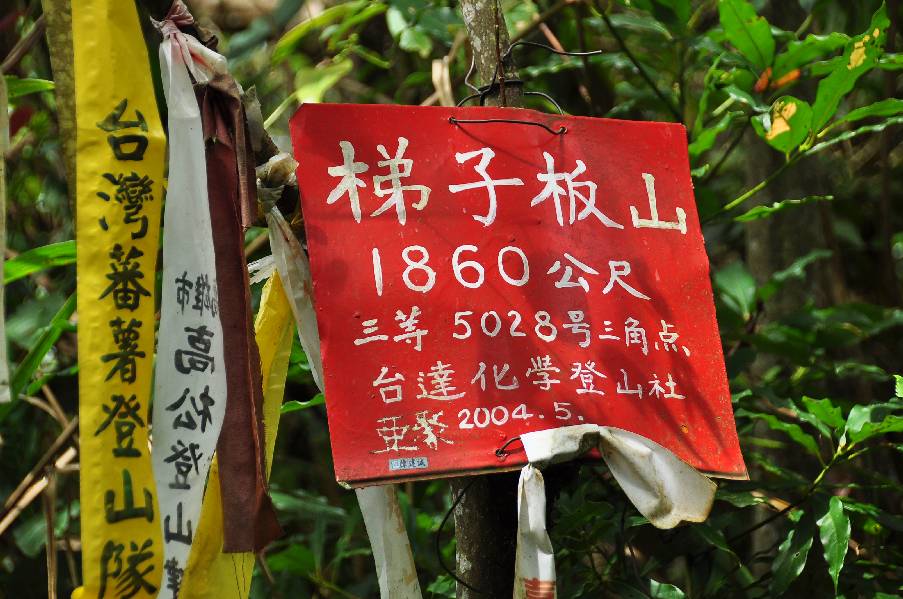 台灣蕃薯登山隊
高雄市
高松登山
梯子板山
1860公尺
三等 5028号三角点
台達化學登山社
亜聚 2004.5.